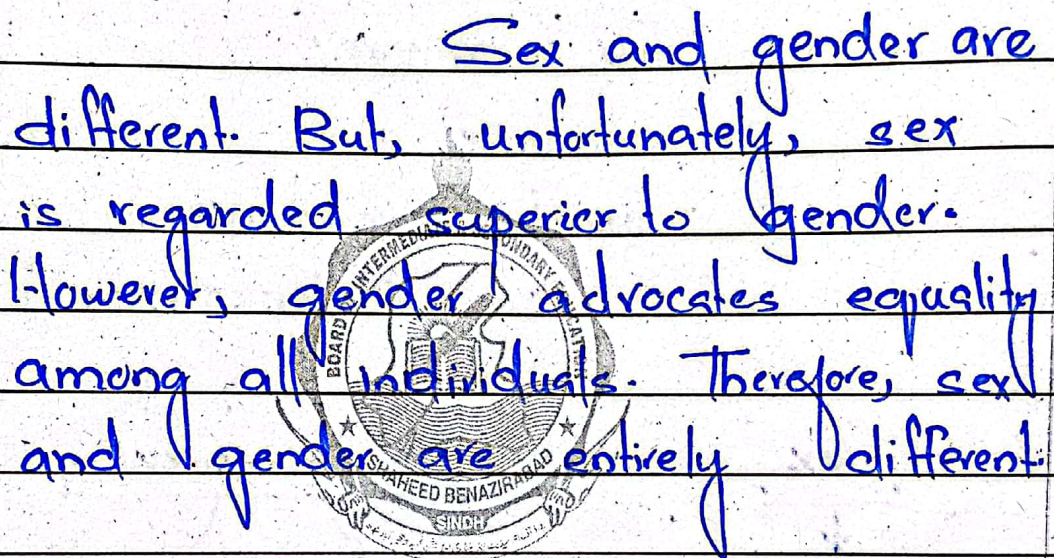 Sex and gender are
different. But, unfortunately, sex
is regarded superior to gender.
However, gender advocates equality
among all individuals. Therefore, sex
and gender are entirely different.
BOARD INTERMEDIATE SECONDARY EDUCATION
SHAHEED BENAZIRABAD
SINDH